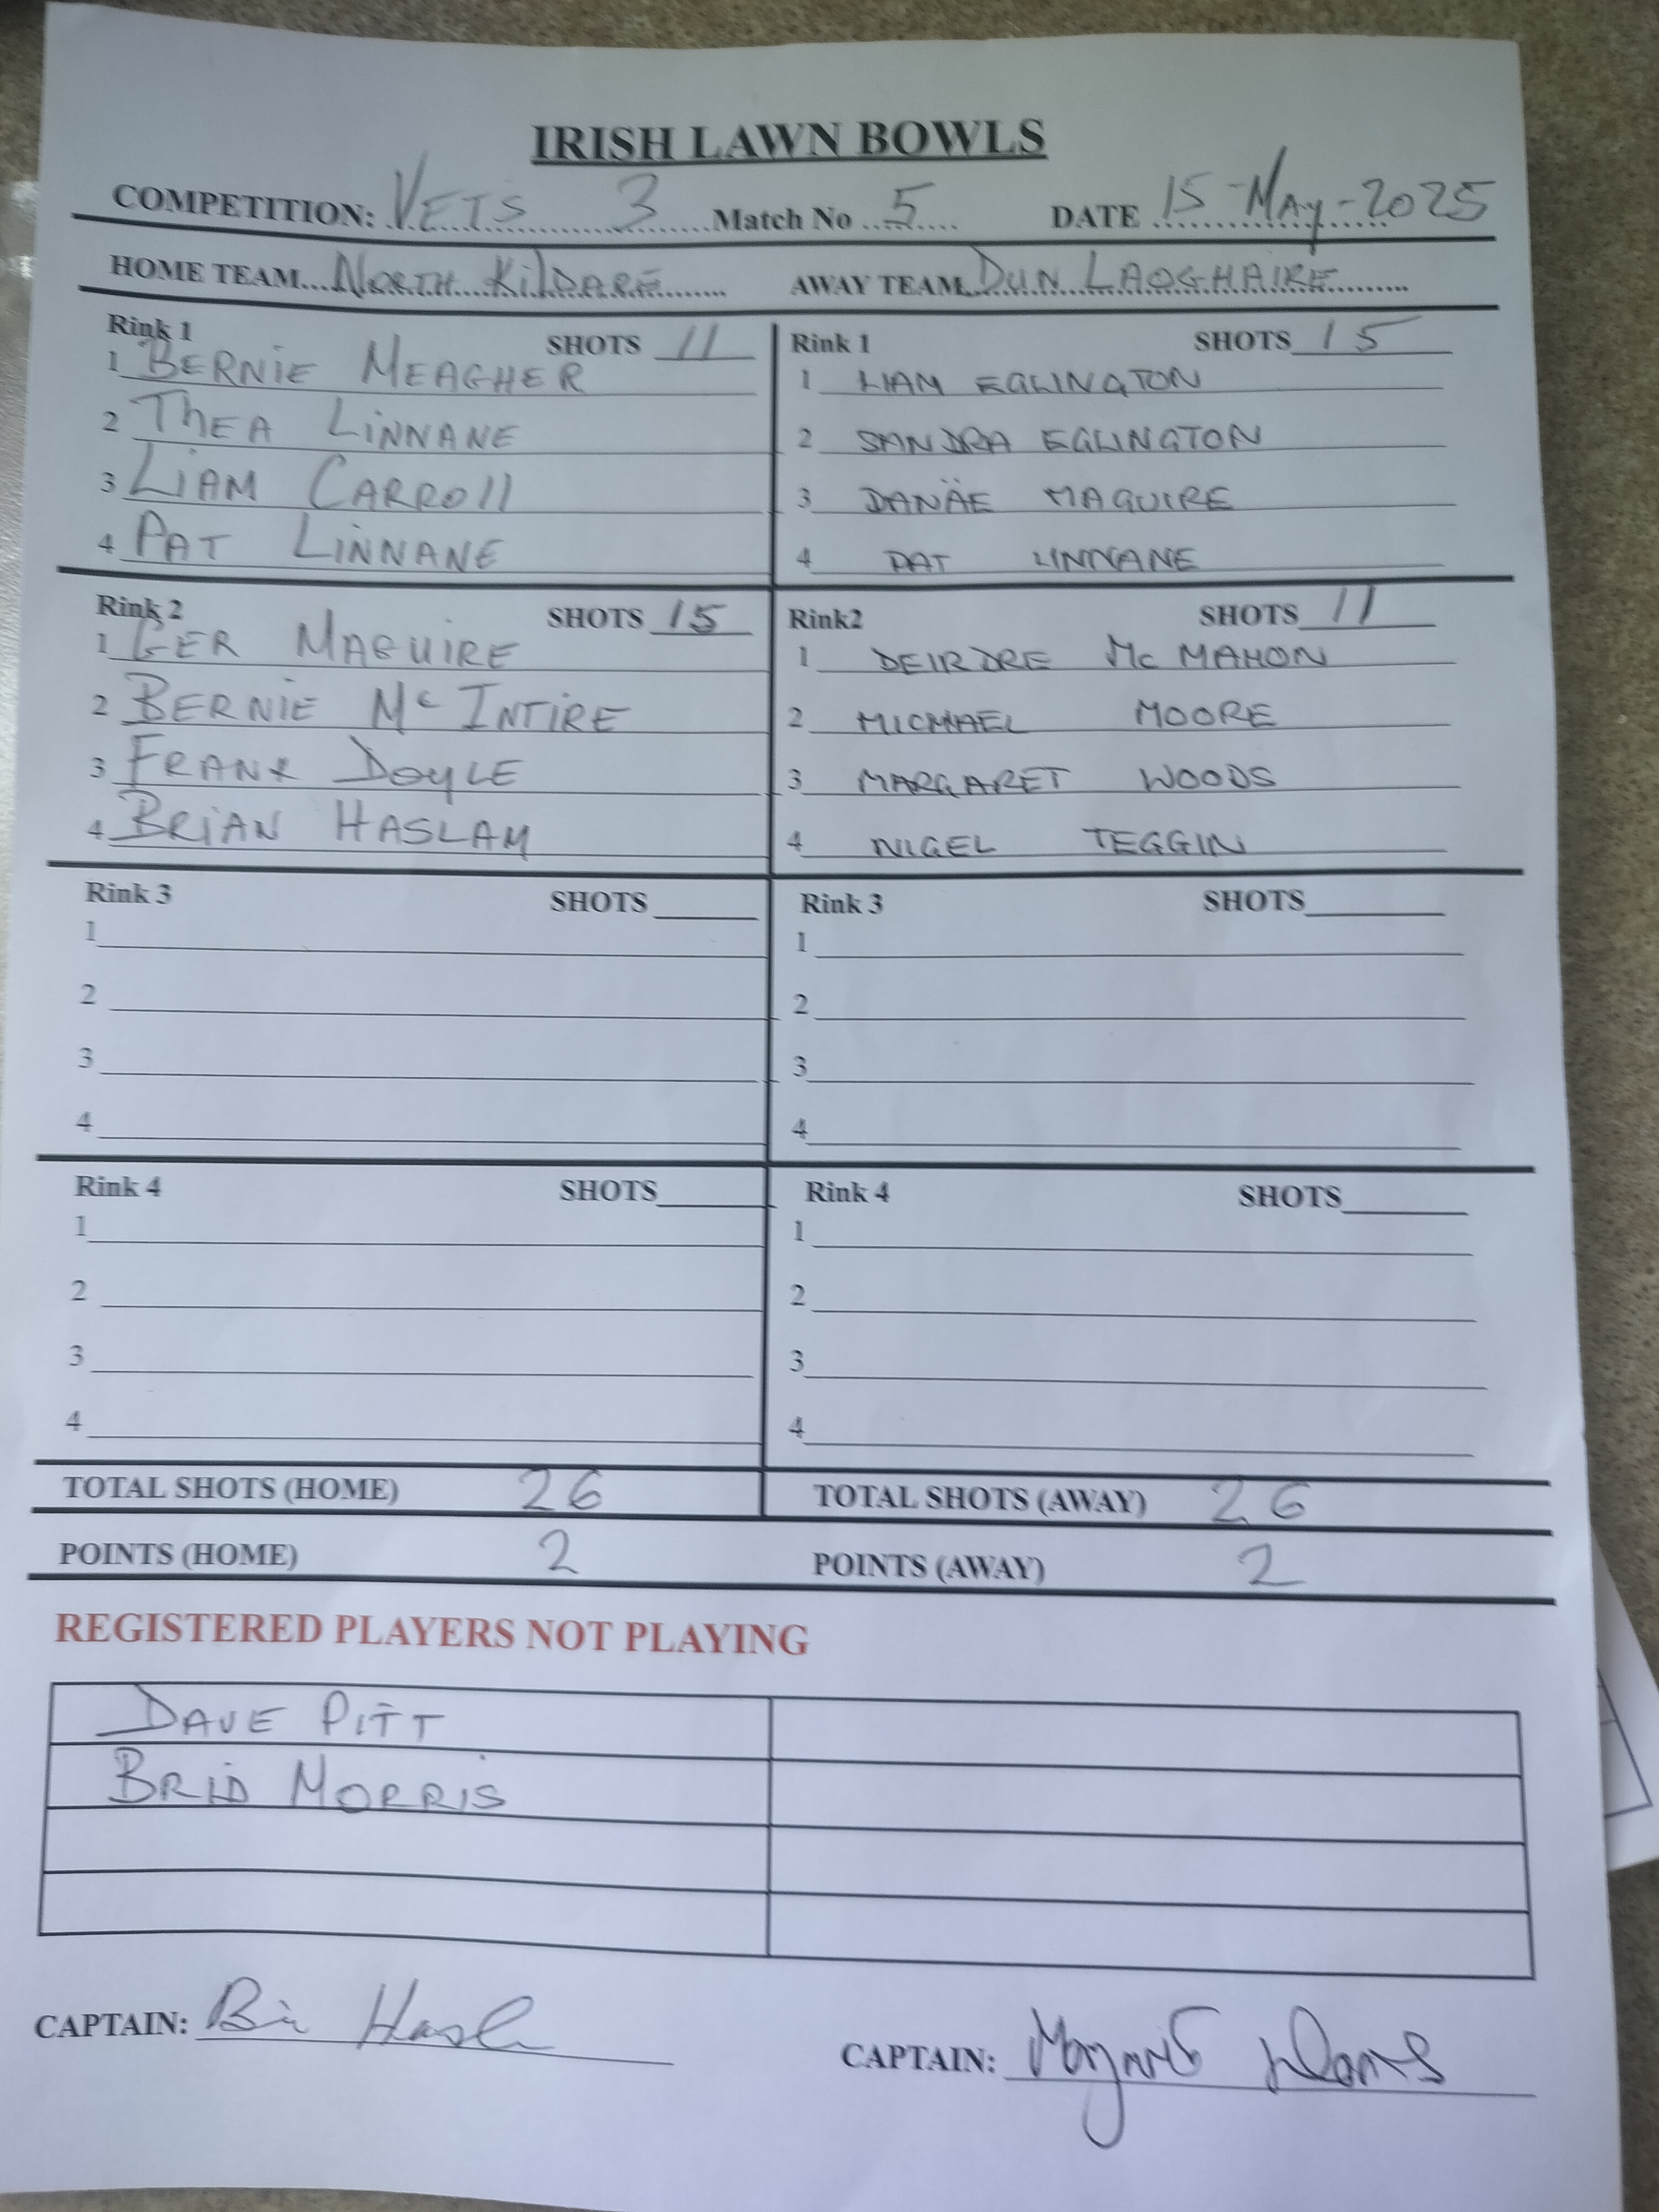 IRISH LAWN BOWLS
COMPETITION: VETS 3 Match No 5 DATE 15-May-2025
HOME TEAM North Kildare AWAY TEAM DUN LAOGHAIRE
Rink 1 SHOTS 11
1 BERNiE MEAGHER
2 ThEA LiNNANE
3 LiAM CARROll
4 PAT LiNNANE
Rink 1 SHOTS 15
1 LIAM EGLINGTON
2 SANDRA EGLINGTON
3 DANÄE MAGUIRE
4 PAT LINNANE
Rink 2 SHOTS 15
1 GER MAGUIRE
2 BERNIE Mc INTIRE
3 FRANK DOYLE
4 BRiAN HASLAM
Rink2 SHOTS 11
1 DEIRDRE Mc MAHON
2 MICHAEL MOORE
3 MARGARET WOODS
4 NIGEL TEGGIN
Rink 3 SHOTS
1
2
3
4
Rink 3 SHOTS
1
2
3
4
Rink 4 SHOTS
1
2
3
4
Rink 4 SHOTS
1
2
3
4
TOTAL SHOTS (HOME) 26 TOTAL SHOTS (AWAY) 26
POINTS (HOME) 2 POINTS (AWAY) 2
REGISTERED PLAYERS NOT PLAYING
DAVE PITT
BRID MORRIS
CAPTAIN:
CAPTAIN: